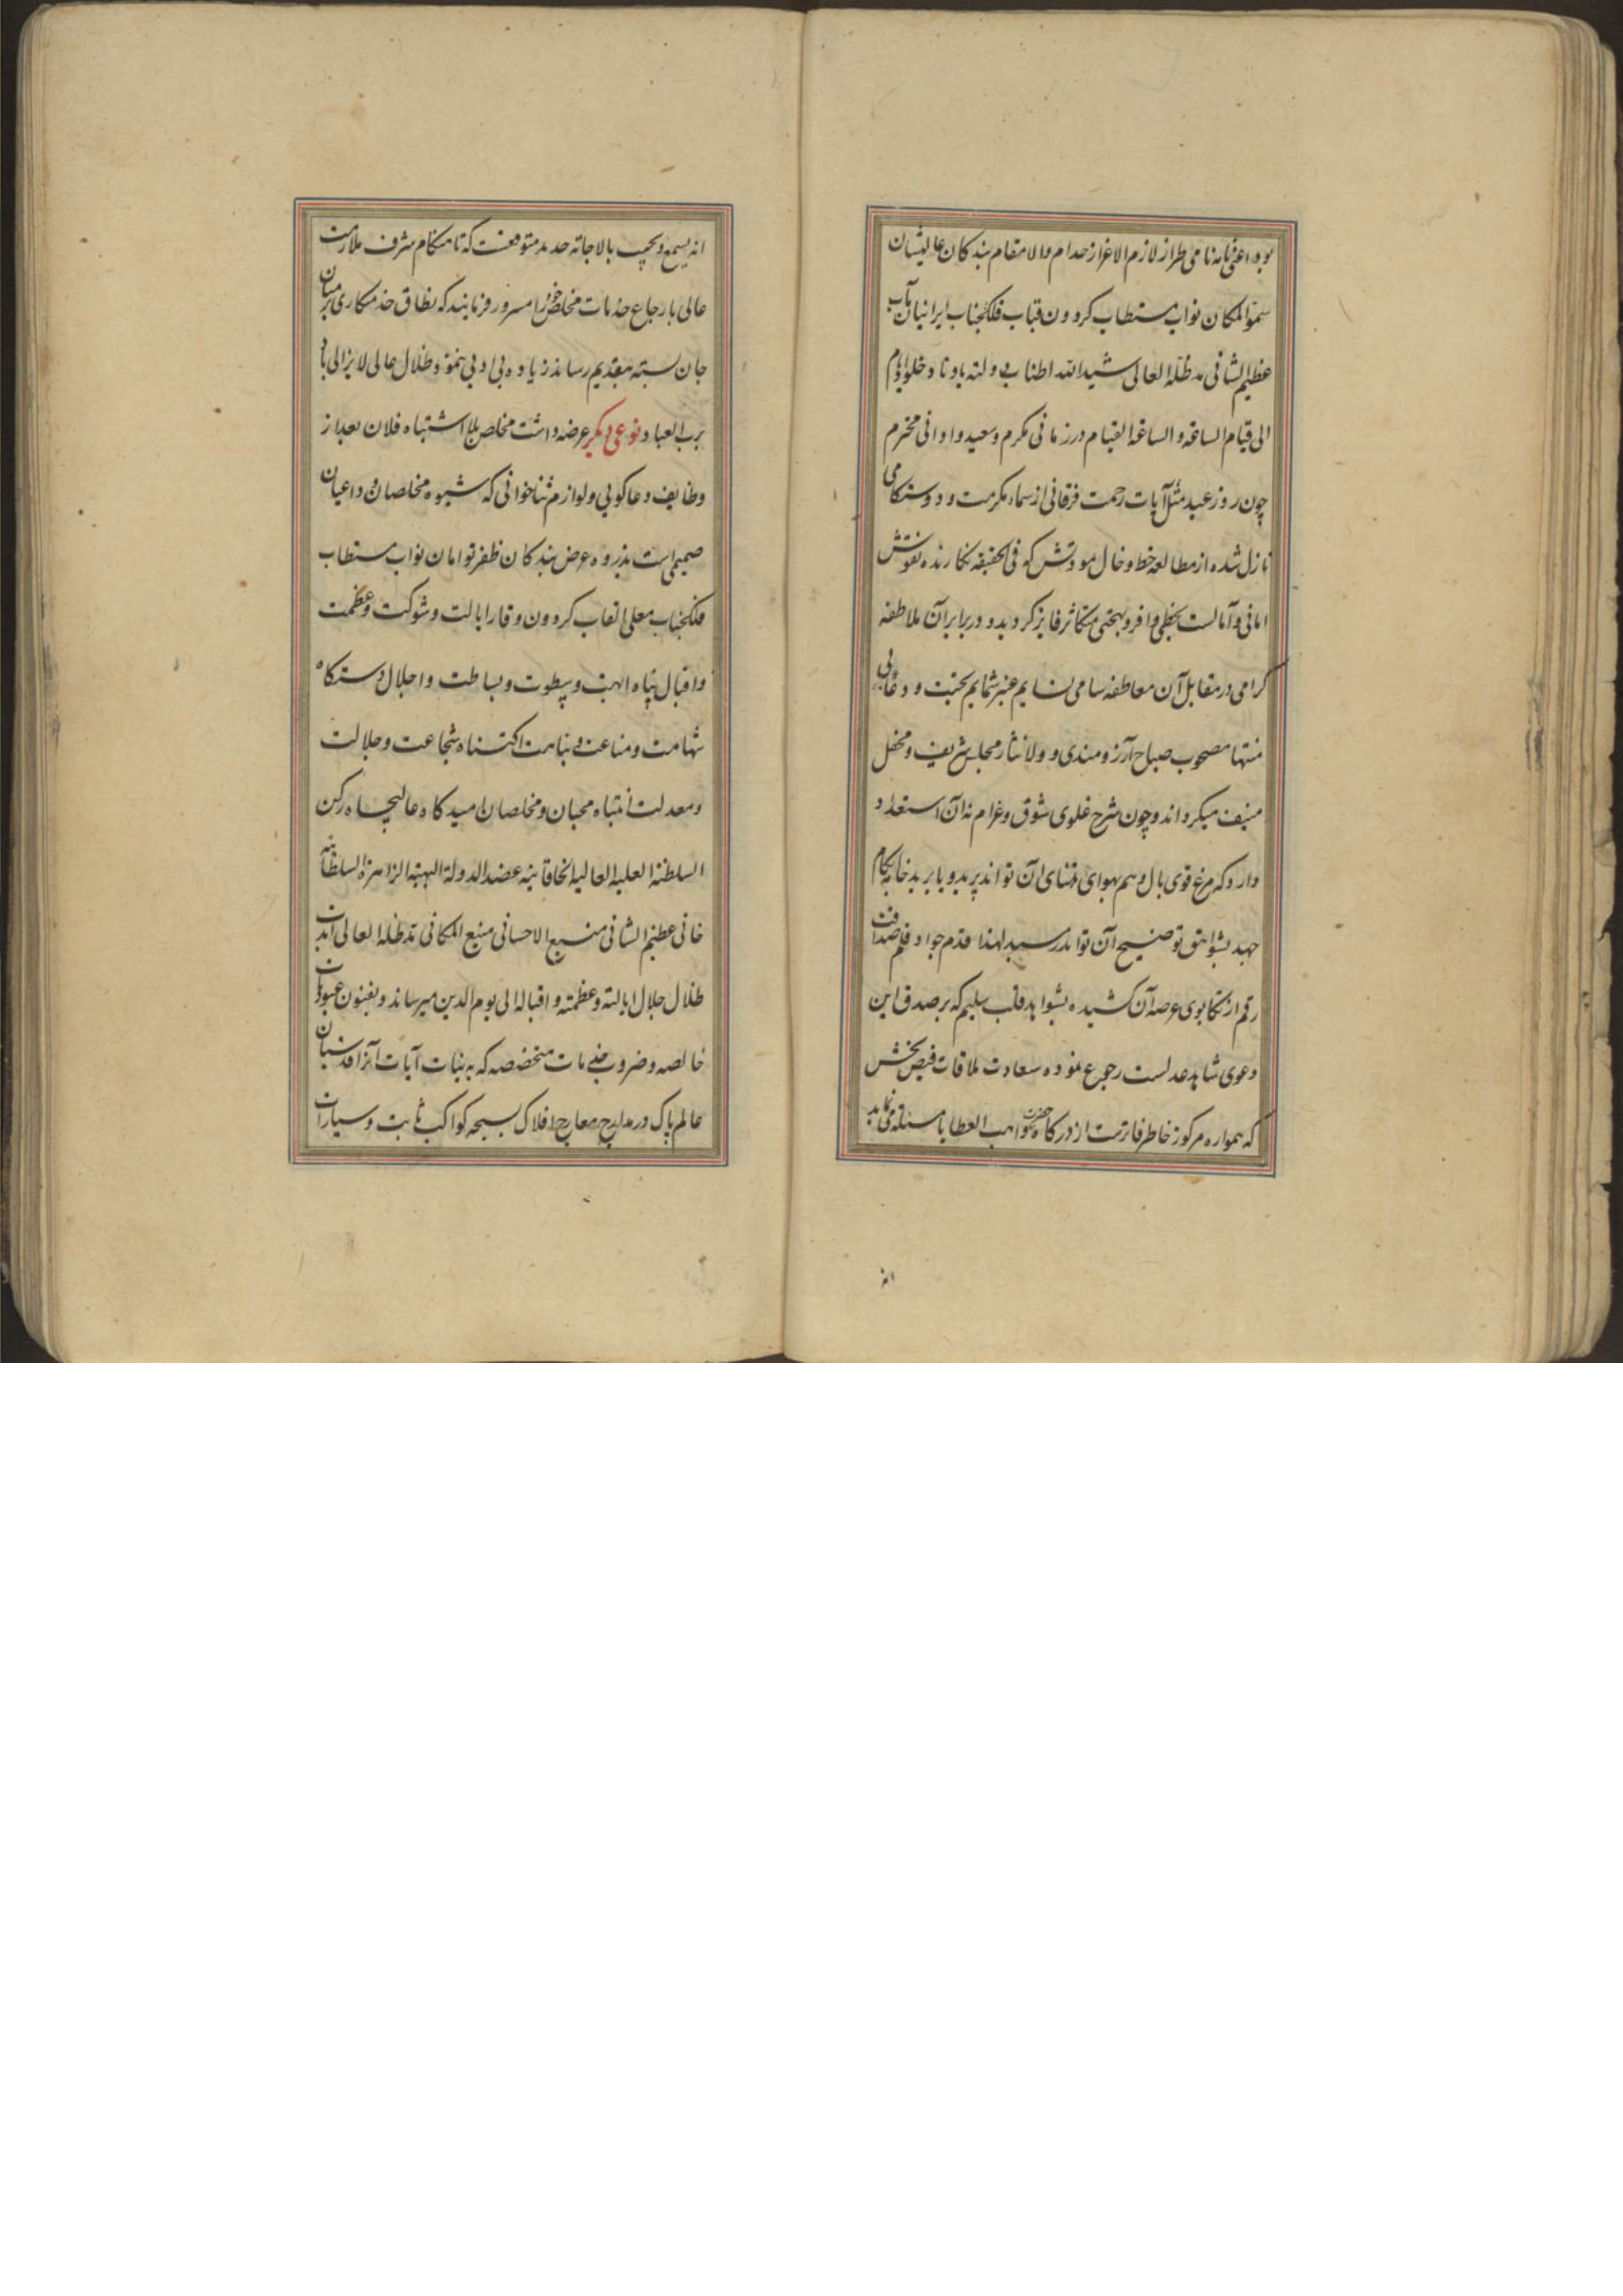 بود اعنی نامه نامی طراز لازم الاعزاز خدام والا مقام بندکان عالیشان
سمو المکان نواب مستطاب کردون قباب فلکجناب ایرانیان مآب
عظیم الشانی مد ظله العالی شید الله اطناب دولته باوتاد خلود
الی قیام الساعة و الساعة القیام در زمانی مکرم و سعید و اوانی محترم
چون روز عید مثل آیات رحمت فرقانی از سماء مکرمت و دوستکامی
نازل شده از مطالعه خط و خال مودتش که فی الحقیقه نکارنده نقوش
امانی و آمالست بحظی وافر و بهجتی متکاثر فایز کردید و در برابر آن ملاطفه
کرامی در مقابل آن معاطفه سامی نسایم عنبر شمایم تحیت و دعای بی
منتها مصحوب صباح آرزومندی و ولا نثار مجلس شریف و محفل
منیف میکرداند و چون شرح غلوی شوق و غرام نه آن استعداد
دارد که مرغ قوی بال وهم بهوای فضای آن تواند پرید و یا برید خامه بکام
جهد بشواهق توضیح آن تواند رسید لهذا قدم جواد قلم صداقت
رقم از تکاپوی عرصه آن کشیده بشواهد قلب سلیم که بر صدق این
دعوی شاهد عدلست رجوع نموده سعادت ملاقات فیض بخش
که همواره مرکوز خاطر فاترست از درکاه حضرت واهب العطایا مسئلت می نماید
انه
انه یسمع و یجیب بالاجابه جدید متوقعست که تا هنکام شرف ملازمت
عالی بارجاع خدمات مخلص خود را مسرور فرمایند که نطاق خدمتکاری بر میان
جان بسته بتقدیم رساند زیاده بی ادبی ننمود و ظلال عالی لایزالی باد
برب العباد نوعی دیکر عرضه داشت مخلص بلا اشتباه فلان بعد از
وظایف دعاکویی و لوازم ثناخوانی که شیوه مخلصان و داعیان
صمیمی است بذروه عرض بندکان ظفر توامان نواب مستطاب
فلکجناب معلی القاب کردون وقار ایالت و شوکت و عظمت
و اقبال پناه ابهت و سطوت و بساطت و اجلال دستکاه
شهامت و مناعت و نباهت اکتناه شجاعت و جلالت
و معدلت انتباه محبان و مخلصان امیدکاه عالیجاه رکن
السلطنة العلیة العالیة الخاقانیه عضد الدولة البهیة الزاهرة السلطانیه
خانی عظیم الشانی منبع الاحسانی منیع المکانی مد ظله العالی ابدت
ظلال جلال ایالته و عظمته و اقباله الی یوم الدین میرساند و بفنون عبودیات
خالصه و ضروب خدمات متخصصه که بینات آیات آنرا قدسیان
عالم پاک در مدارج معارج افلاک بسبحه کواکب ثابت و سیارات